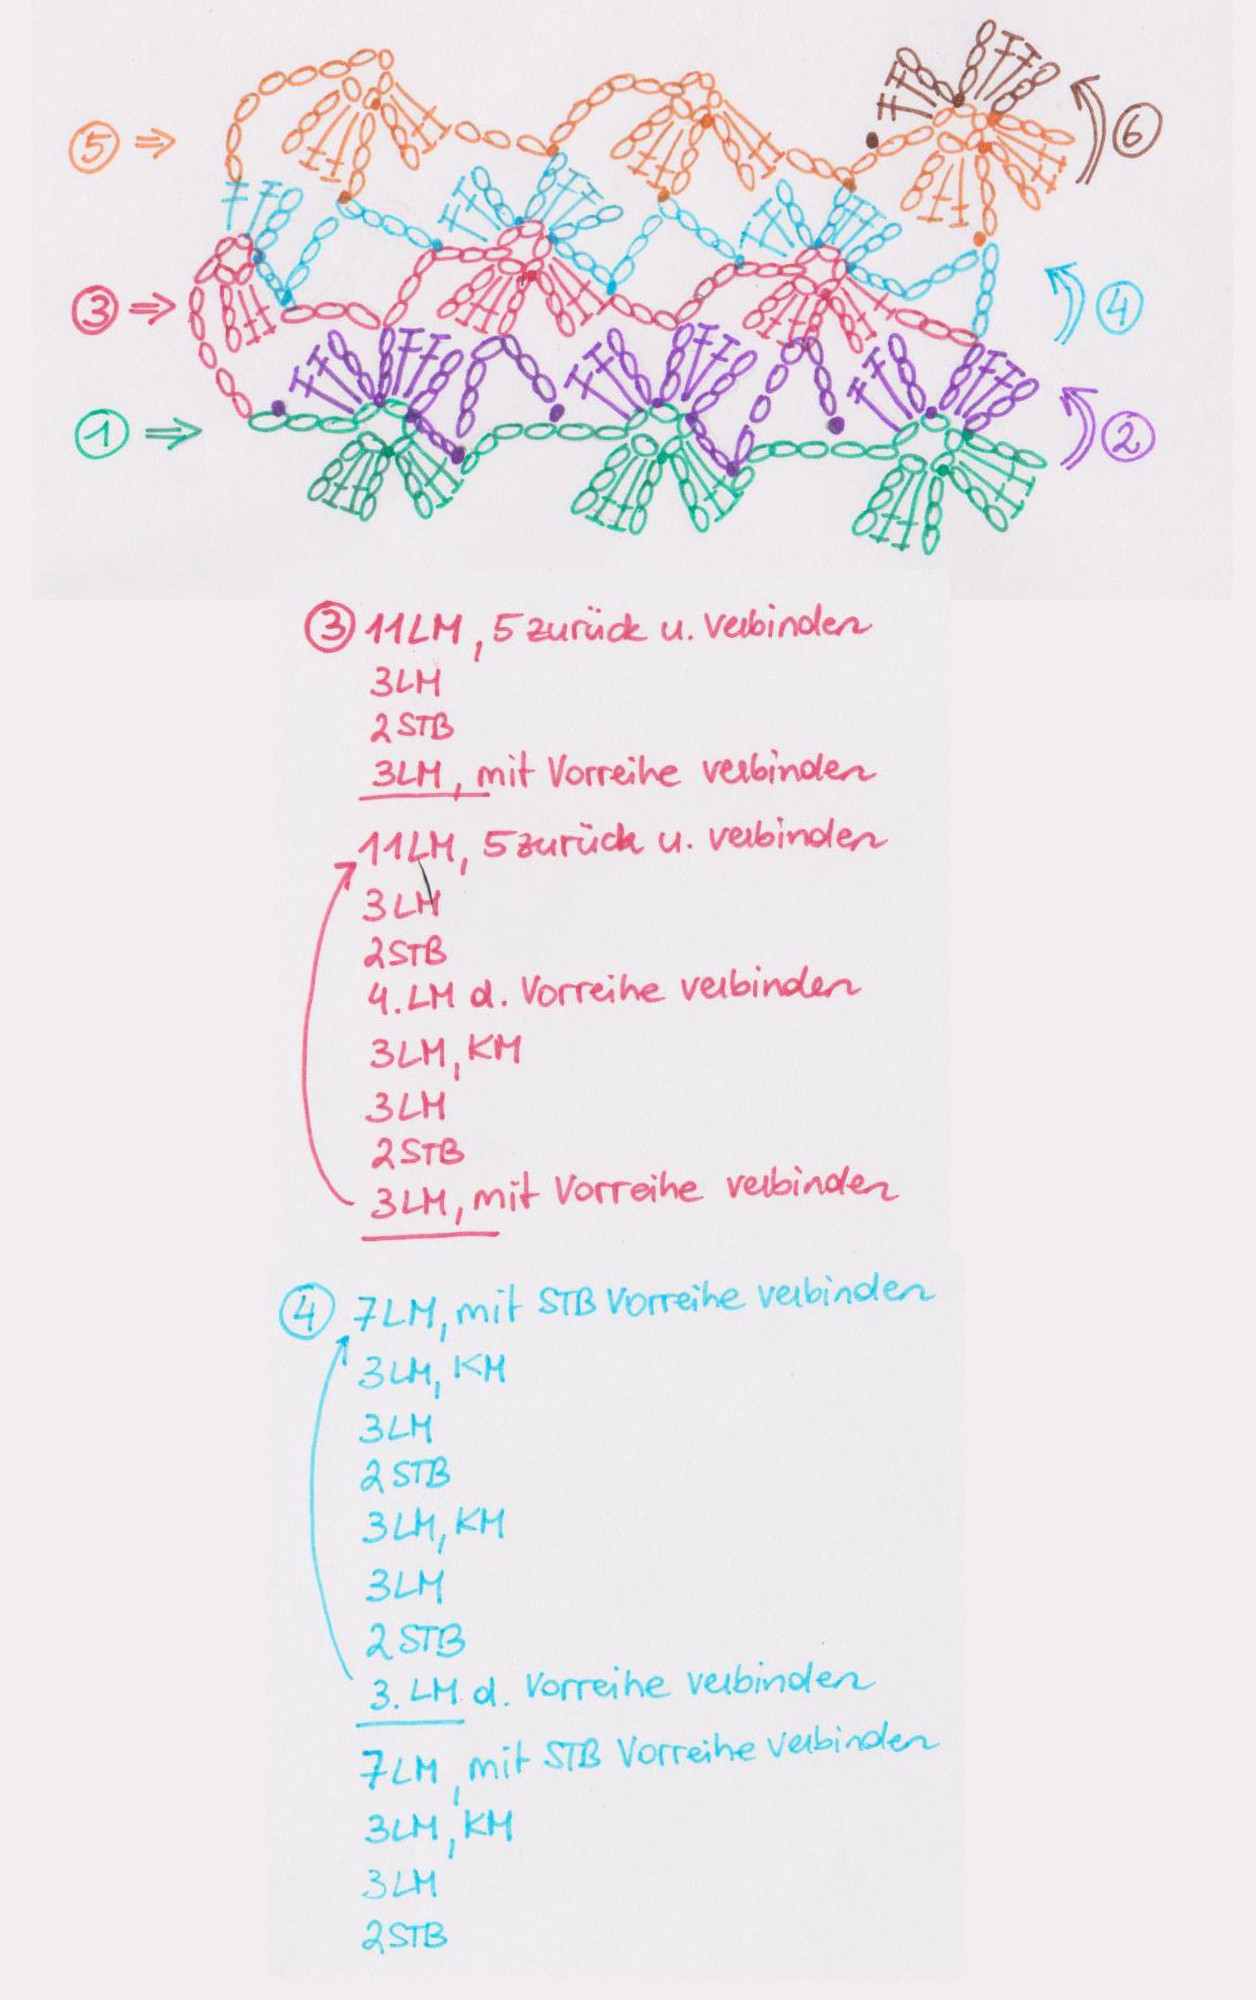 5
6
3
4
1
2
3 11LM, 5 zurück u. verbinden
3LM
2STB
3LM, mit Vorreihe verbinden
11LM, 5 zurück u. verbinden
3LM
2STB
4.LM d. Vorreihe verbinden
3LM, KM
3LM
2STB
3LM, mit Vorreihe verbinden
4 7LM, mit STB Vorreihe verbinden
3LM, KM
3LM
2STB
3LM, KM
3LM
2STB
3.LM d. Vorreihe verbinden
7LM, mit STB Vorreihe verbinden
3LM, KM
3LM
2STB